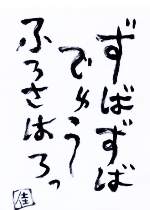 ずばずば
でゆう
ふろさはろっ
佳